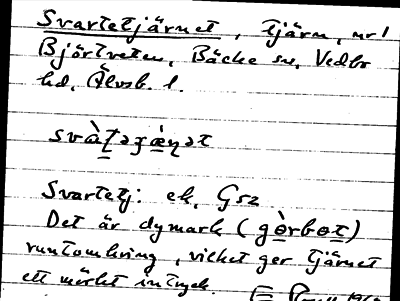 Svartetjärnet, tjärn, nr 1
Björtveten, Bäcke sn, Vedbo
hd, Älvsb. l.
svàʈəʒæ̀ɳət
Svartetj: ek, Gsz
Det är dymark (gørbøt)
runtomkring, vilket ger tjärnet
ett mörkt intryck.